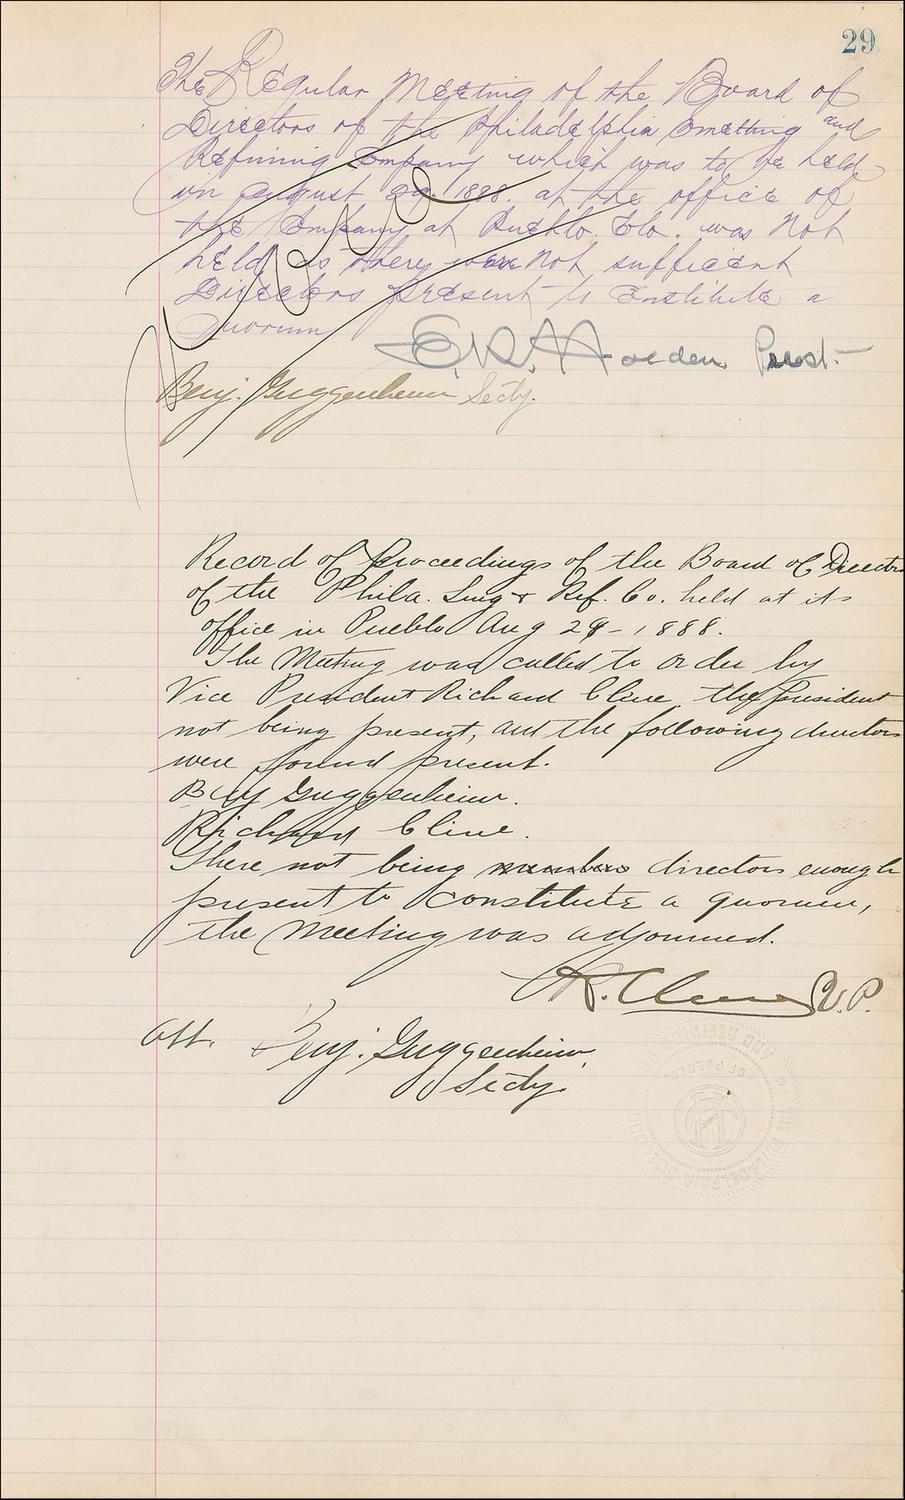 29
The Regular Meeting of the Board of
Directors of the Philadelphia Smelting and
Refining Company which was to be held
on August 29 1888. at the office of
the Company at Pueblo. Colo. was not
held as there were not sufficient
Directors present to constitute a
quorum
E. R. Holden Prest.
Benj. Guggenheim Secty.
Record of Proceedings of the Board of Directors
of the Phila. Smg & Ref. Co. held at its
office in Pueblo Aug 29 - 1888.
The Meeting was called to order by
Vice President Richard Cline, the president
not being present, and the following directors
were found present.
Benj Guggenheim.
Richard Cline.
There not being members directors enough
present to constitute a quorum,
the meeting was adjourned.
R. Cline V.P.
Att. Benj. Guggenheim
Secty.
THE PHILADELPHIA
AND REFINING
OF PUEBLO